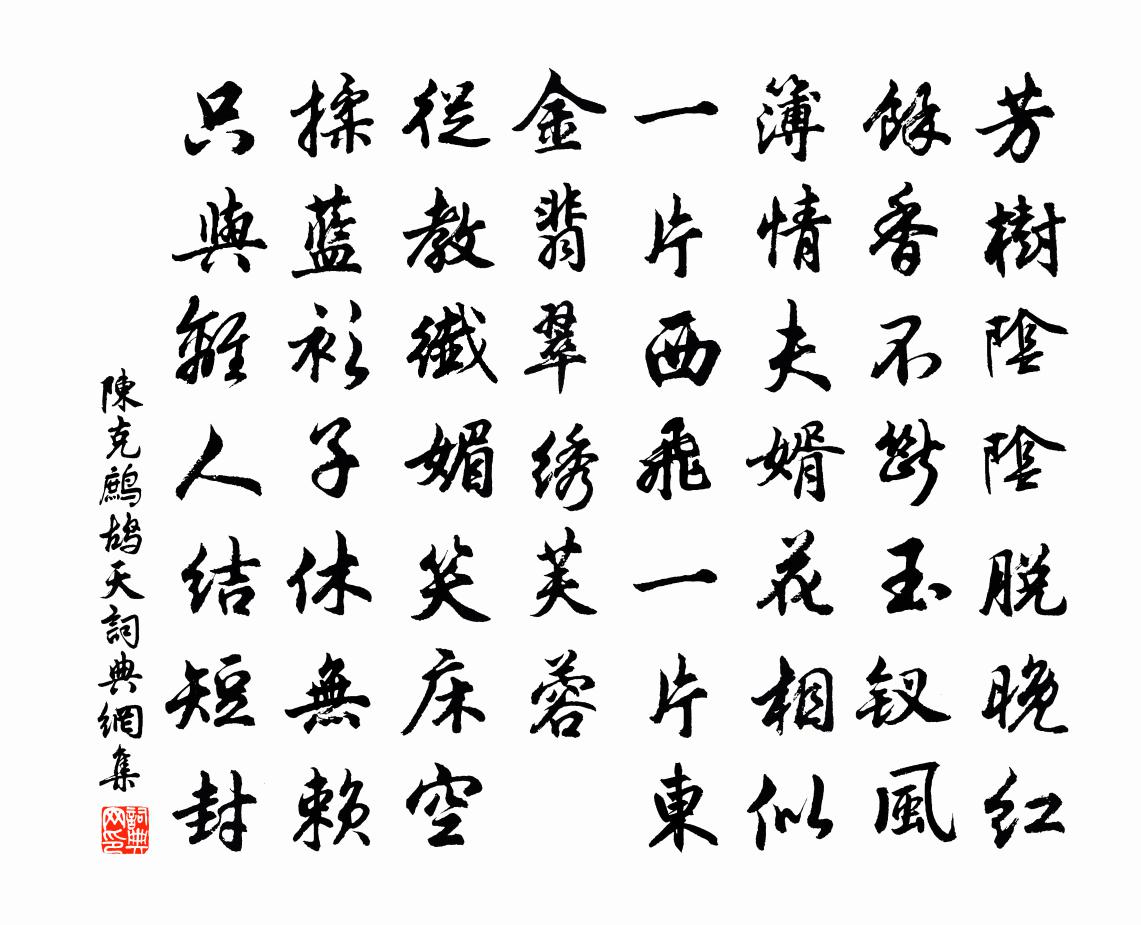 芳樹陰陰脱晚紅
餘香不斷玉釵風
薄情夫婿花相似
一片西飛一片東
金翡翠綉芙蓉
從教纖媚笑床空
揉藍衫子休無賴
只與離人結短封
陳克鷓鴣天詞典網集
詞典網印